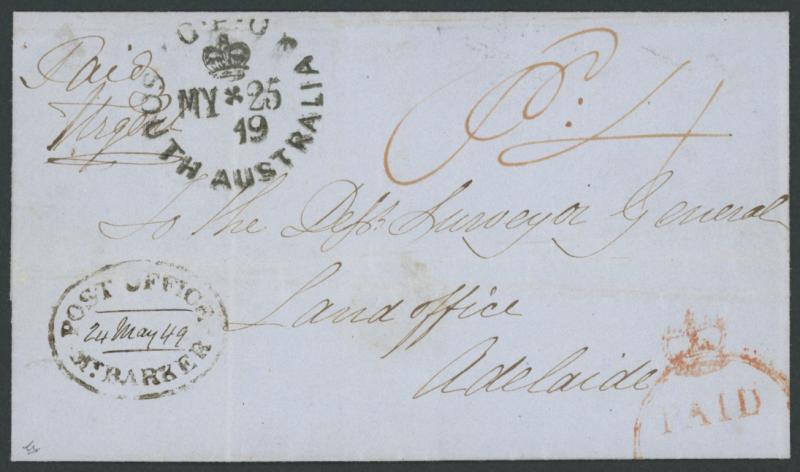 Paid
Urgent
G.P.O
SOUTH AUSTRALIA
MY * 25
49
P: 4
To the Depy. Surveyor General
Land office
Adelaide
POST OFFICE
24 May 49
Mt. BARKER
PAID